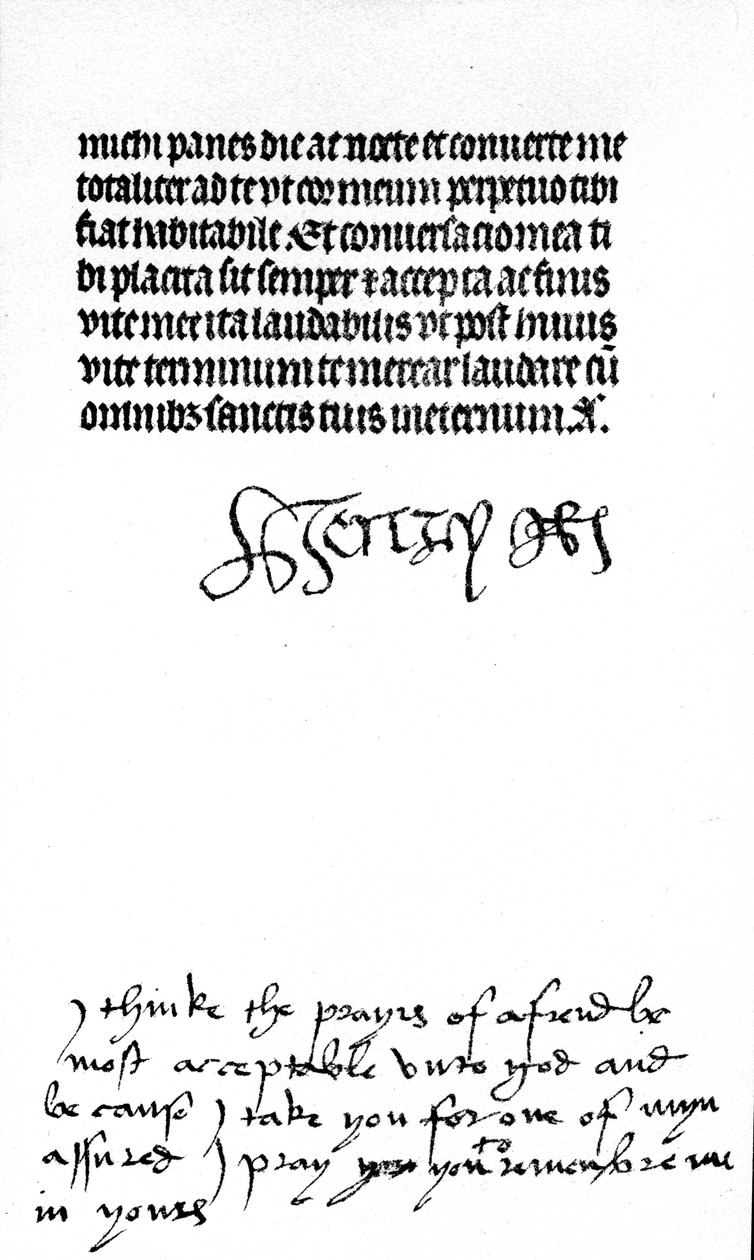 michi panes die ac nocte et conuerte me
totaliter ad te vt cor meum perpetuo tibi
fiat habitabile. Et conuersacio mea ti
bi placita sit semper & accepta ac finis
vite mee ita laudabilis vt post huius
vite terminum te merear laudare cū
omnibꝫ sanctis tuis ineternum. A.
Henry
I thinke the prayrs of a frend be
most acceptable vnto god and
be cause I take you for one of myn
assured I pray you to remembre me
in yours